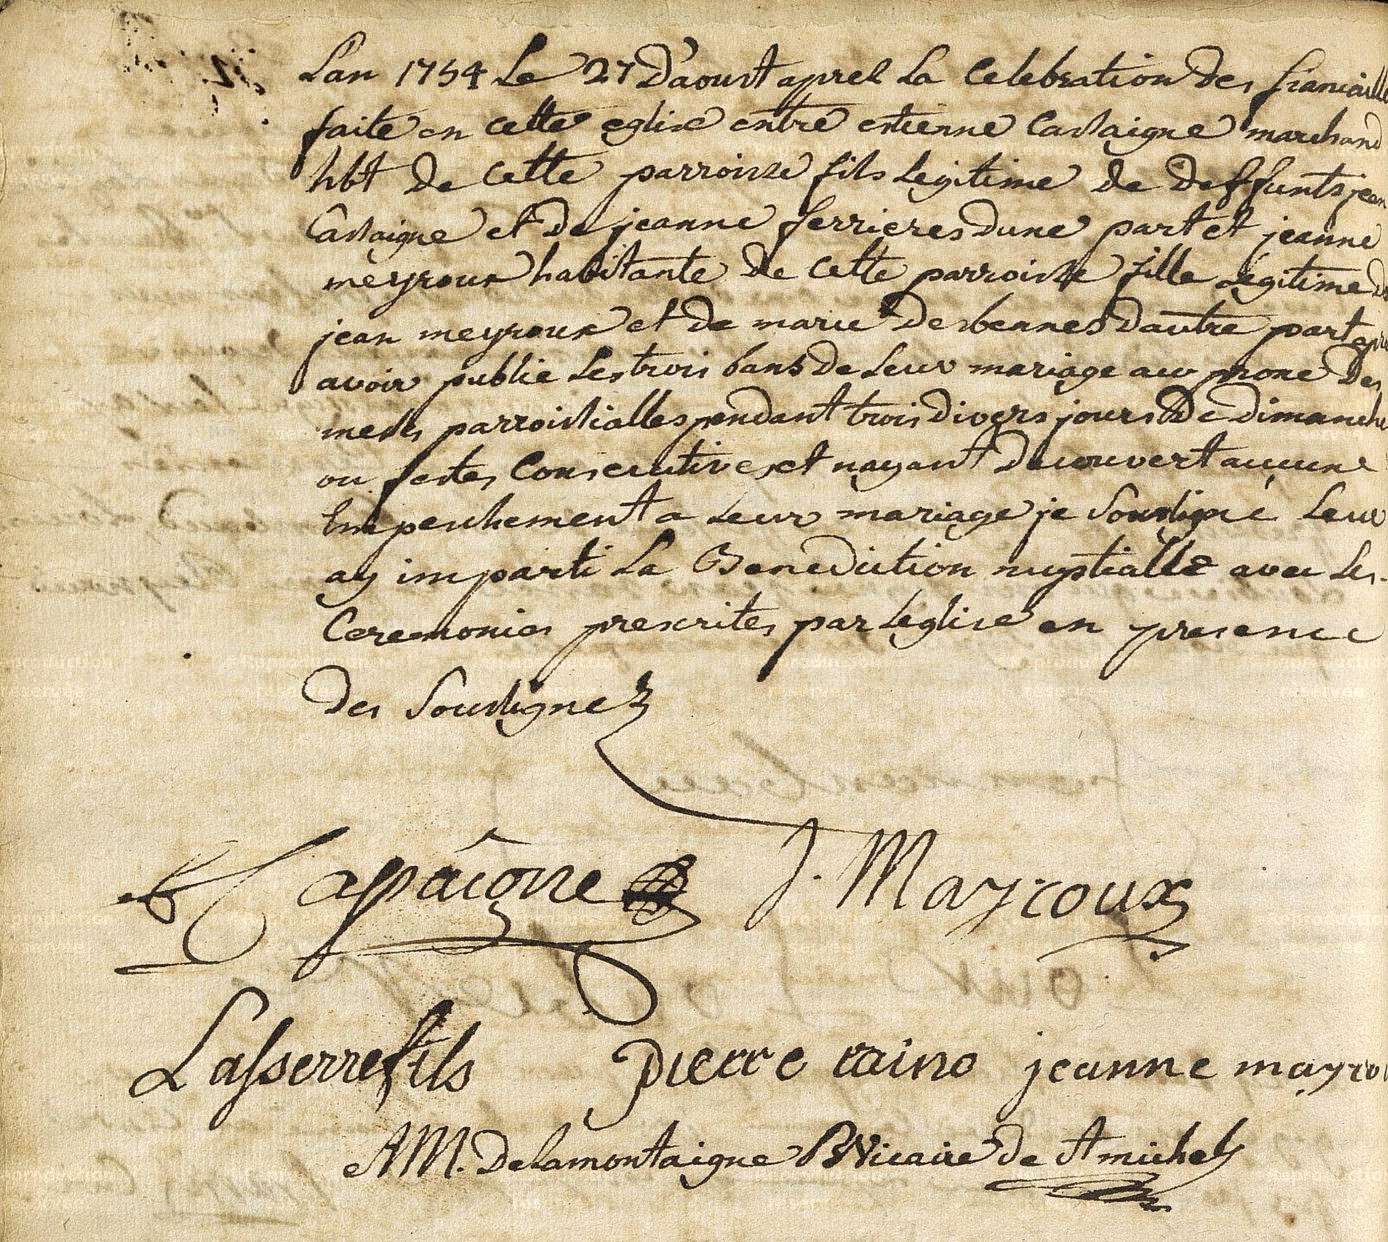 Lan 1754 Le 27 D'aoust aprel La Celebration des fiancaille
faite en cette eglise entre estienne Cassaigne marchand
hbt de cette parroisse fils legitime de deffunts jean
Cassaigne et de jeanne ferrieres dune part et jeanne
meyroux habitante de cette parroisse fille Legitime de
jean meyroux et de marie desbennes dautre part apre
avoir publie Les trois bans de Leur mariage au prone Des
messes parroissialles pendant trois divers jours De dimanche
ou festes Consecutives et nayant decouvert aucune
Empeschement a Leur mariage je Soussigné Leur
ay imparti La Benediction nuptialle avec Les
Ceremonies prescrites par Leglise en presence
des Soussignez
Cassaigne J. Mayroux
Lasserre fils pierre raino jeanne mayrou
AM. Delamontaigne Vicaire de St michel